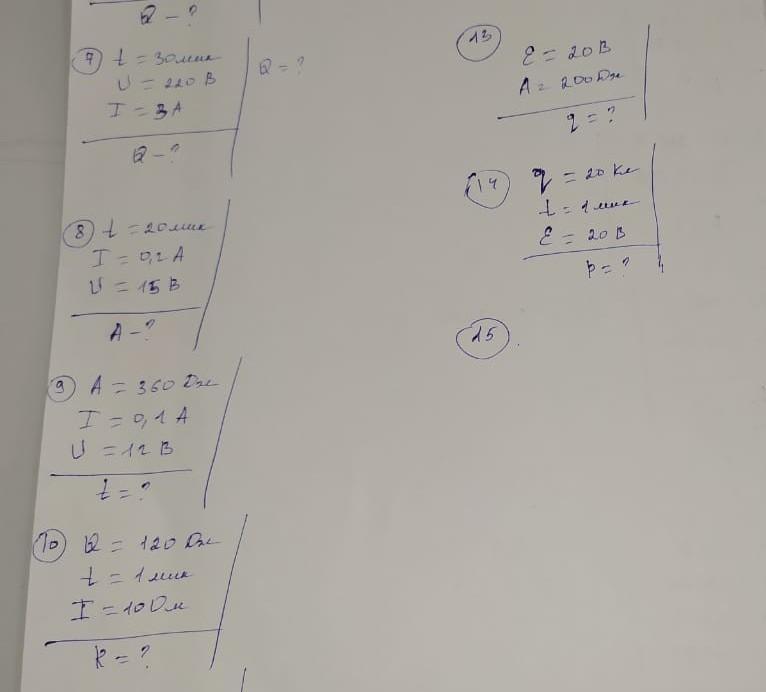 Q - ?
7 t = 30мин
U = 220 В
I = 3 А
Q - ?
Q = ?
8 t = 20мин
I = 0,2 А
U = 15 В
A - ?
9 A = 360 Дж
I = 0,1 А
U = 12 В
t = ?
10 Q = 120 Дж
t = 1мин
I = 10 Ом
R = ?
13
Ɛ = 20В
A = 200Дж
q = ?
14 q = 20 Кл
t = 1мин
Ɛ = 20В
P = ?
15.